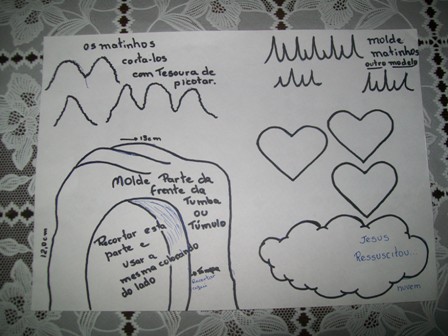 os matinhos
corta-los
com Tesoura de
picotar.
molde
matinhos
outro modelo
13cm
12,0cm
Molde Parte da
frente da
Tumba
ou
Túmulo
Recortar esta
parte e
usar a
mesma colocando
do lado
Tampa
Jesus
Ressuscitou
nuvem